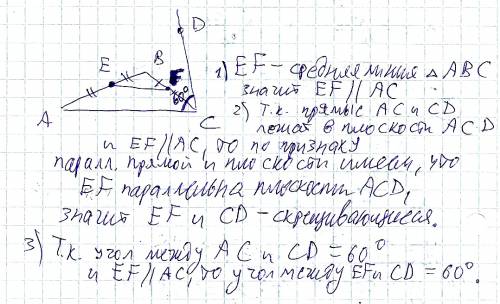 D
E
B
F
60°
A
C
1) EF – средняя линия △ ABC
значит EF || AC
2) Т.к. прямые AC и CD
лежат в плоскости ACD
и EF || AC, то по признаку
паралл. прямой и плоскости имеем, что
EF параллельна плоскости ACD,
значит EF и CD – скрещивающиеся.
3) Т.к. угол между AC и CD = 60°
и EF || AC, то угол между EF и CD = 60°.